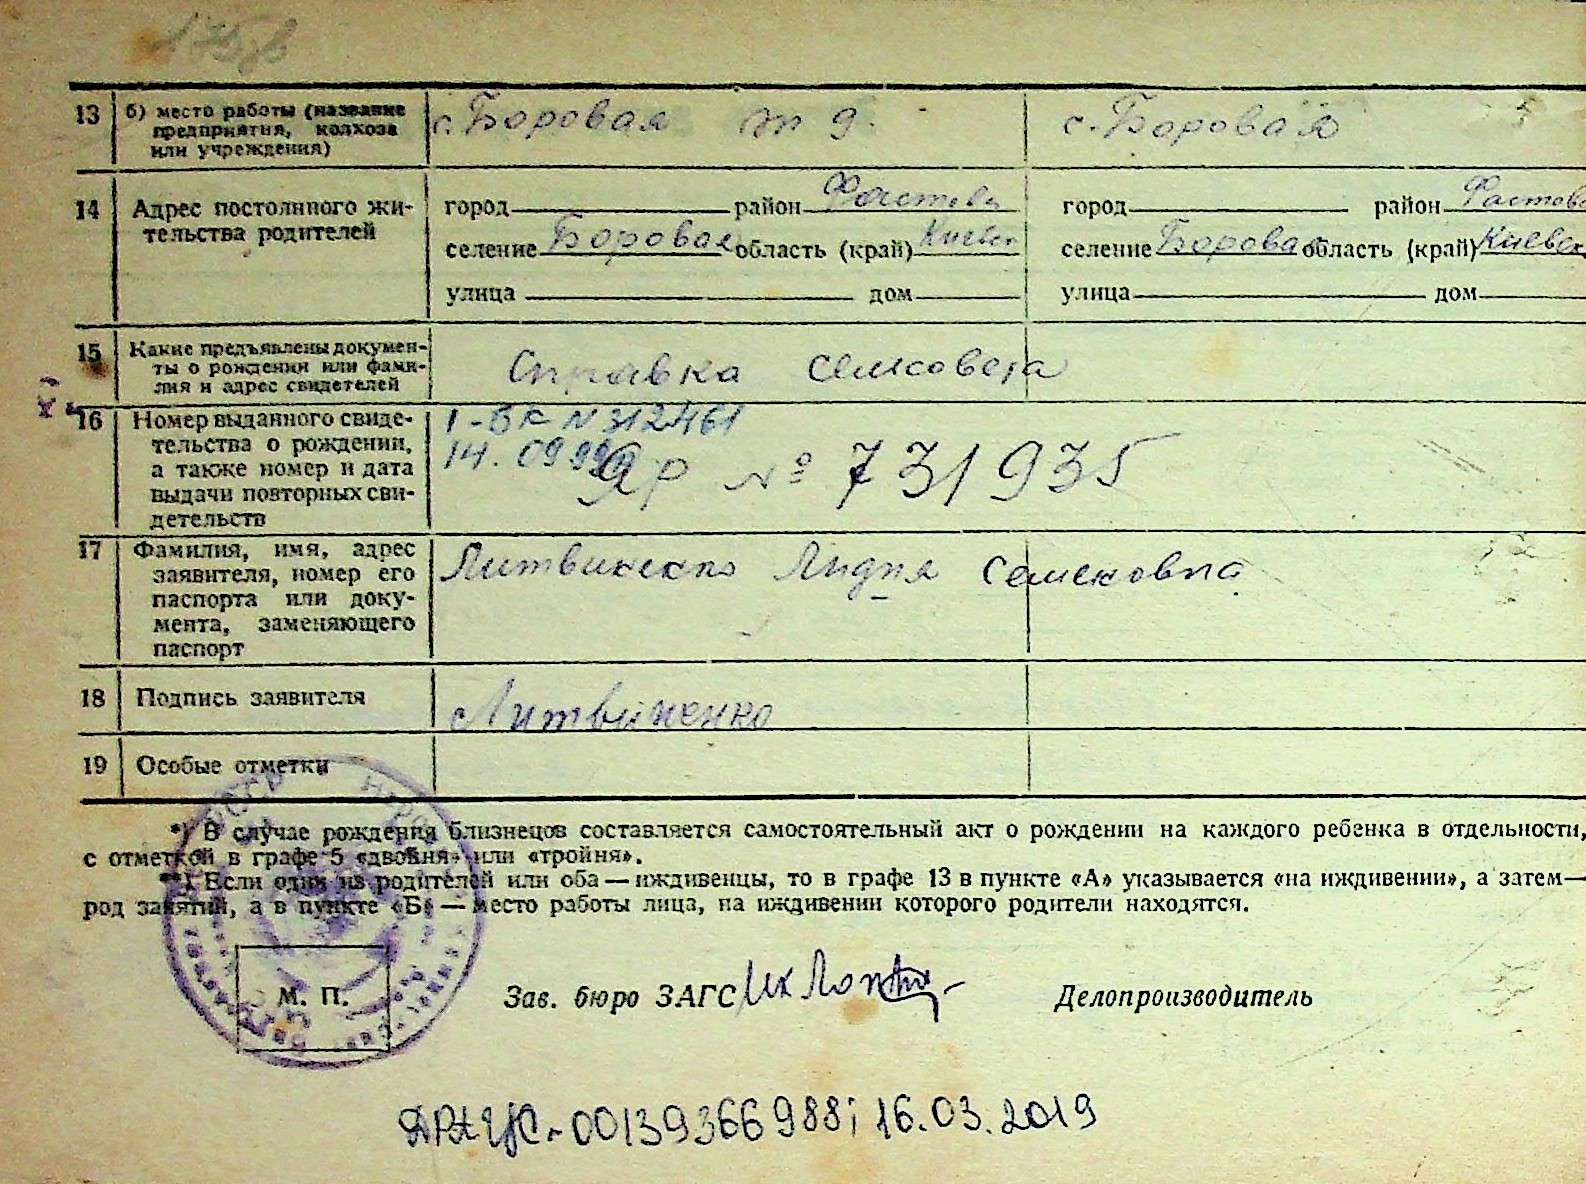 13 б) место работы (название
предприятия, колхоза
или учреждения)
с. Боровая т д. с. Боровая
14 Адрес постоянного жи-
тельства родителей
город район Фастовс город район Фастовс
селение Боровая область (край) Киевск селение Боровая область (край) Киевск
улица дом улица дом
15 Какие предъявлены докумен-
ты о рождении или фами-
лия и адрес свидетелей
Справка сельсовета
16 Номер выданного свиде-
тельства о рождении,
а также номер и дата
выдачи повторных сви-
детельств
I-БК N 312461
14.09.99
ЯР № 731935
17 Фамилия, имя, адрес
заявителя, номер его
паспорта или доку-
мента, заменяющего
паспорт
Литвиненко Лидия Семеновна
18 Подпись заявителя
Литвиненко
19 Особые отметки
*) В случае рождения близнецов составляется самостоятельный акт о рождении на каждого ребенка в отдельности,
с отметкой в графе 5 «двойня» или «тройня».
**) Если один из родителей или оба — иждивенцы, то в графе 13 в пункте «А» указывается «на иждивении», а затем —
род занятий, а в пункте «Б» — место работы лица, на иждивении которого родители находятся.
М. П.
Зав. бюро ЗАГС
Делопроизводитель
ДРАЦС-00139366988; 16.03.2019